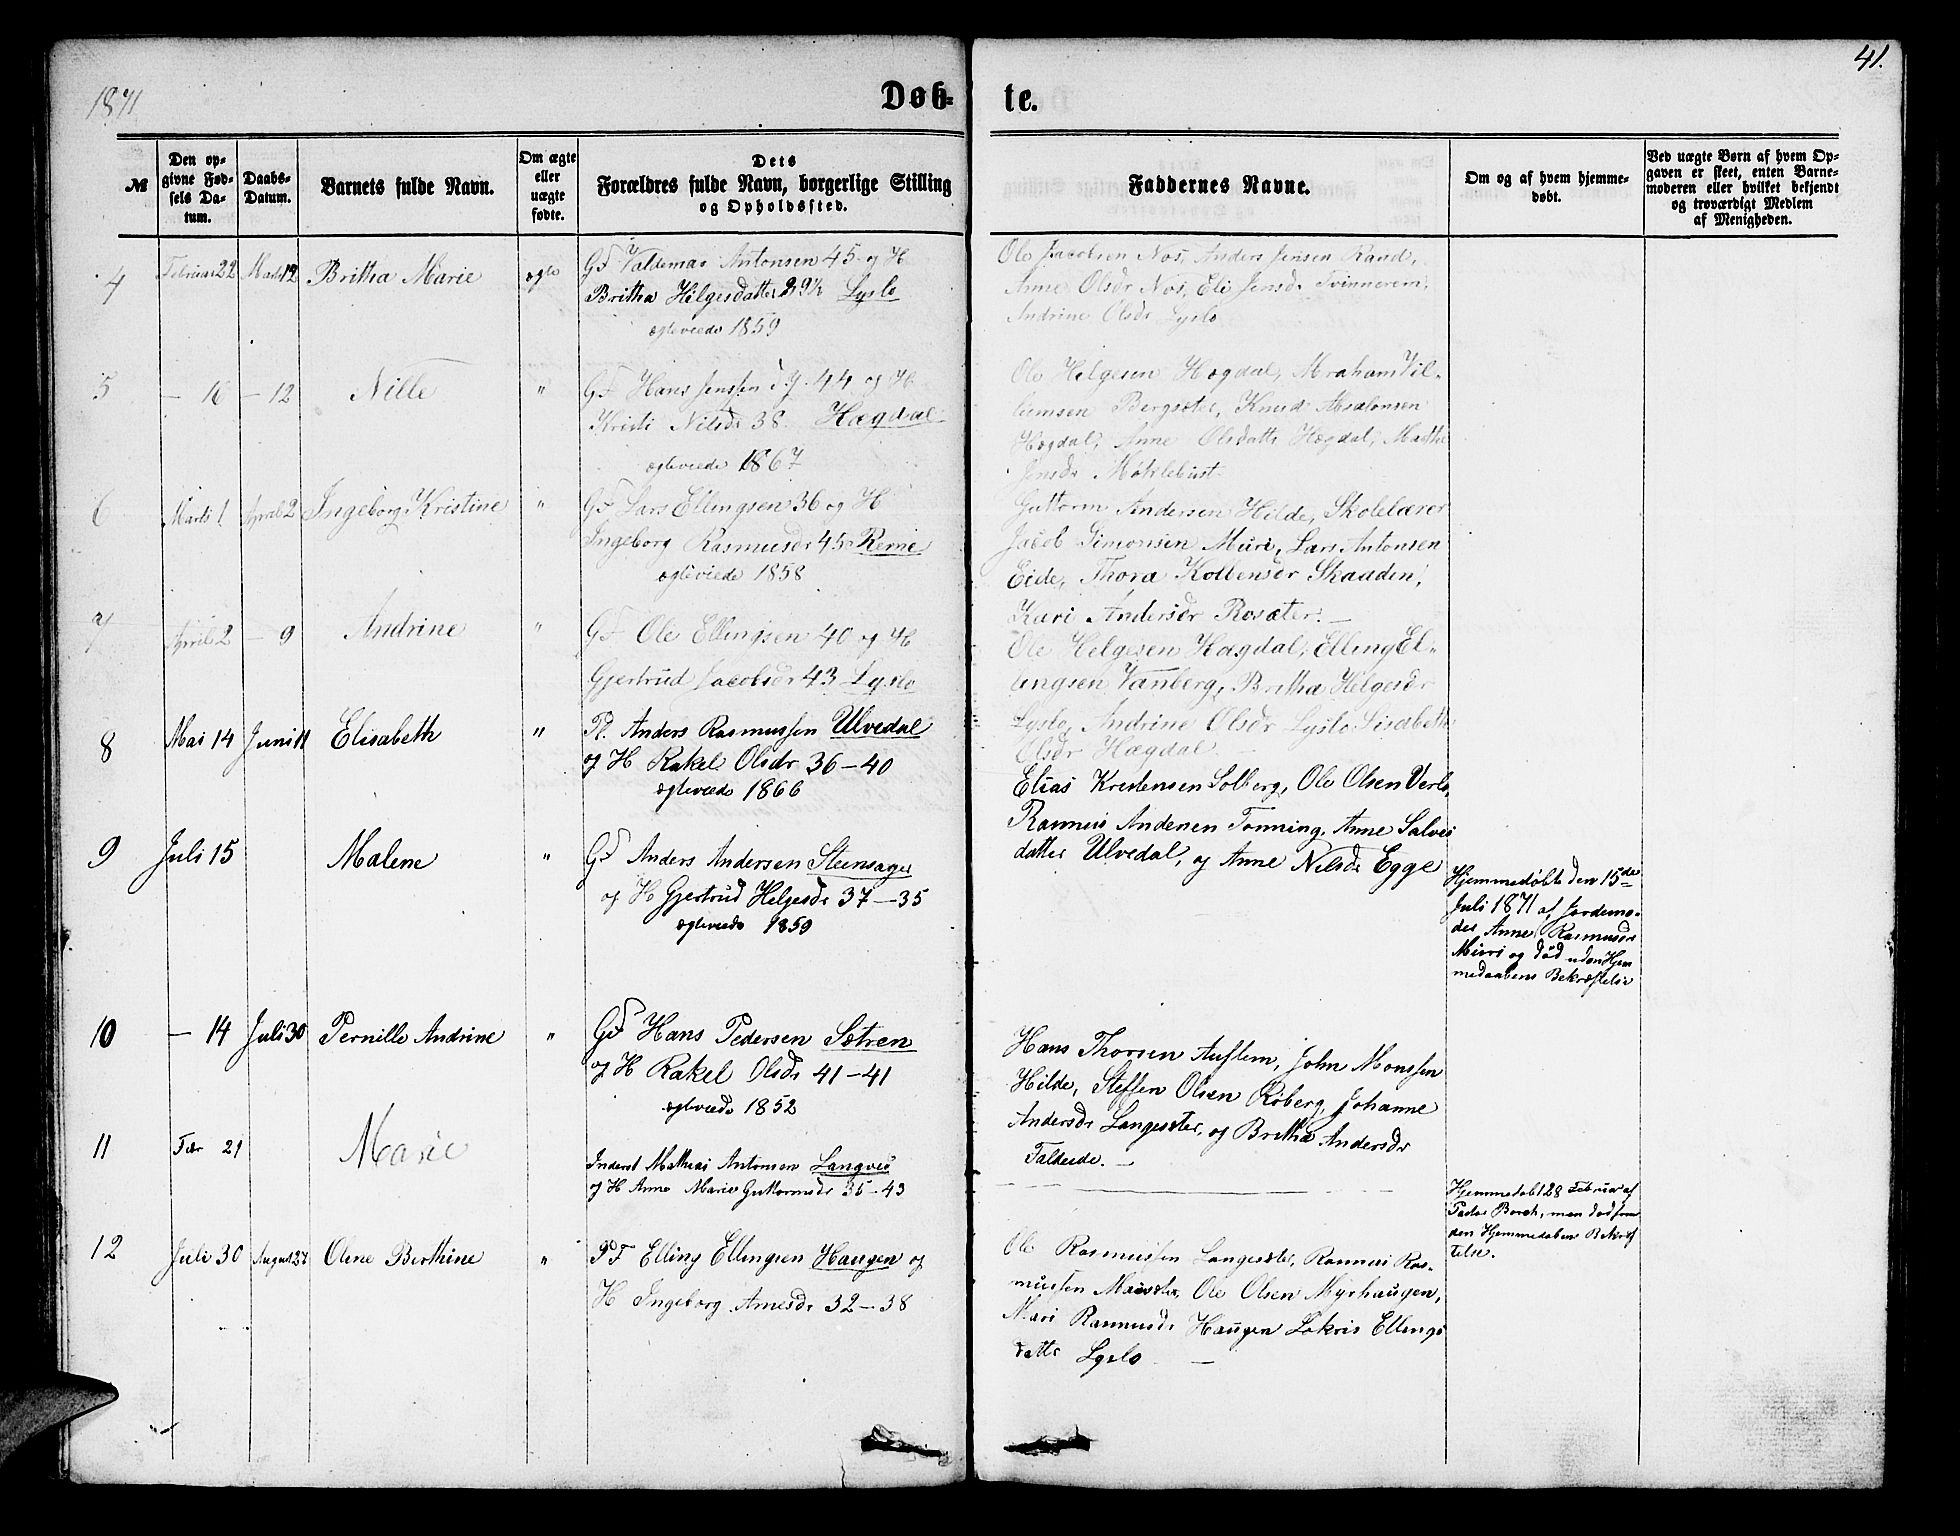 41.
1871
Døb-
te.
№
Den op-
givne Fød-
sels Da-
tum.
Daabs-
Datum.
Barnets fulde Navn.
Om ægte
eller
uægte
fødte.
Dets
Forældres fulde Navn, borgerlige Stilling
og Opholdssted.
Faddernes Navne.
Om og af hvem hjemme-
døbt.
Ved uægte Børn af hvem Op-
gaven er skeet, enten Barne-
moderen eller hvilket bekjendt
og troværdigt Medlem
af Menigheden.
4
Februar 22
Marts 12
Britha Marie
ægte
GF Valdemar Antonsen 45 og H
Britha Helgesdatter 29½ Lyslo
ægteviede 1859
Ole Jacobsen Nos, Anders Jensen Rand,
Anne Olsdr Nos, Eli Jensdr Tvinnerem,
Andrine Olsdr Lyslo
5
— 16
— 12
Nille
"
GF Hans Jenssen d.y. 44 og H
Kristi Nilsdr 38. Hægdal
ægteviede 1867
Ole Helgesen Hægdal, Abraham Vil-
lumsen Bergsæter, Knud Absalonsen
Hægdal, Anne Olsdatter Hægdal, Marthe
Jensdr Møklebust
6
Marts 1
April 2
Ingeborg Kristine
"
GF Lars Ellingsen 36 og H
Ingeborg Rasmusdr 45 Reme
ægteviede 1858
Guttorm Andersen Hilde, Skolelærer
Jacob Simonsen Muri, Lars Antonsen
Eide, Thora Kolbensdr Skaaden,
Kari Andersdr Rosæter. —
7
April 2
— 9
Andrine
"
GF Ole Ellingsen 40 og H
Gjertrud Jacobsdr 43 Lyslo
Ole Helgesen Hægdal, Elling El-
lingsen Vanberg, Britha Helgesdr
Lyslo, Andrine Olsdr Lyslo Lisabeth
Olsdr Hægdal. —
8
Mai 14
Juni 11
Elisabeth
"
Pl. Anders Rasmussen Ulvedal
og H Rakel Olsdr 36 — 40
ægteviede 1866
Elias Krestensen Solberg, Ole Olsen Verlo,
Rasmus Andersen Tonning, Anne Salves
datter Ulvedal, og Anne Nilsdr Egge
9
Juli 15
Malene
"
GF Anders Andersen Steinsager
og H Gjertrud Helgesdr 37 — 35
ægteviede 1859
Hjemmedøbt den 15de
Juli 1871 af Jordemo-
der Anne Rasmusdr
Muri og død uden Hjem
medaabens Bekræftelse
10
— 14
Juli 30
Pernille Andrine
"
GF Hans Pedersen Sætren
og H Rakel Olsdr 41 — 41
ægteviede 1852
Hans Thorsen Auflem, John Monssen
Hilde, Steffen Olsen Roberg, Johanne
Andersdr Langesæter, og Britha Andersdr
Taldeide. —
11
Febr 21
Marie
Inderst Mathias Antonsen Langvei
og H Anne Marie Guttormsdr 35 - 43
Hjemmedøbt 28 Februar af
Pastor Borch, men død foran
den Hjemmedaabens Bekræf
telse.
12
Juli 30
August 27
Oline Berthine
"
PF Elling Ellingsen Haugen og
H Ingeborg Arnesdr 32 — 38
Ole Rasmussen Langesæter, Rasmus Ras-
mussen Maurset, Ole Olsen Myrhaugen,
Mari Rasmusdr Haugen Lokris Ellings
datter Lyslo —